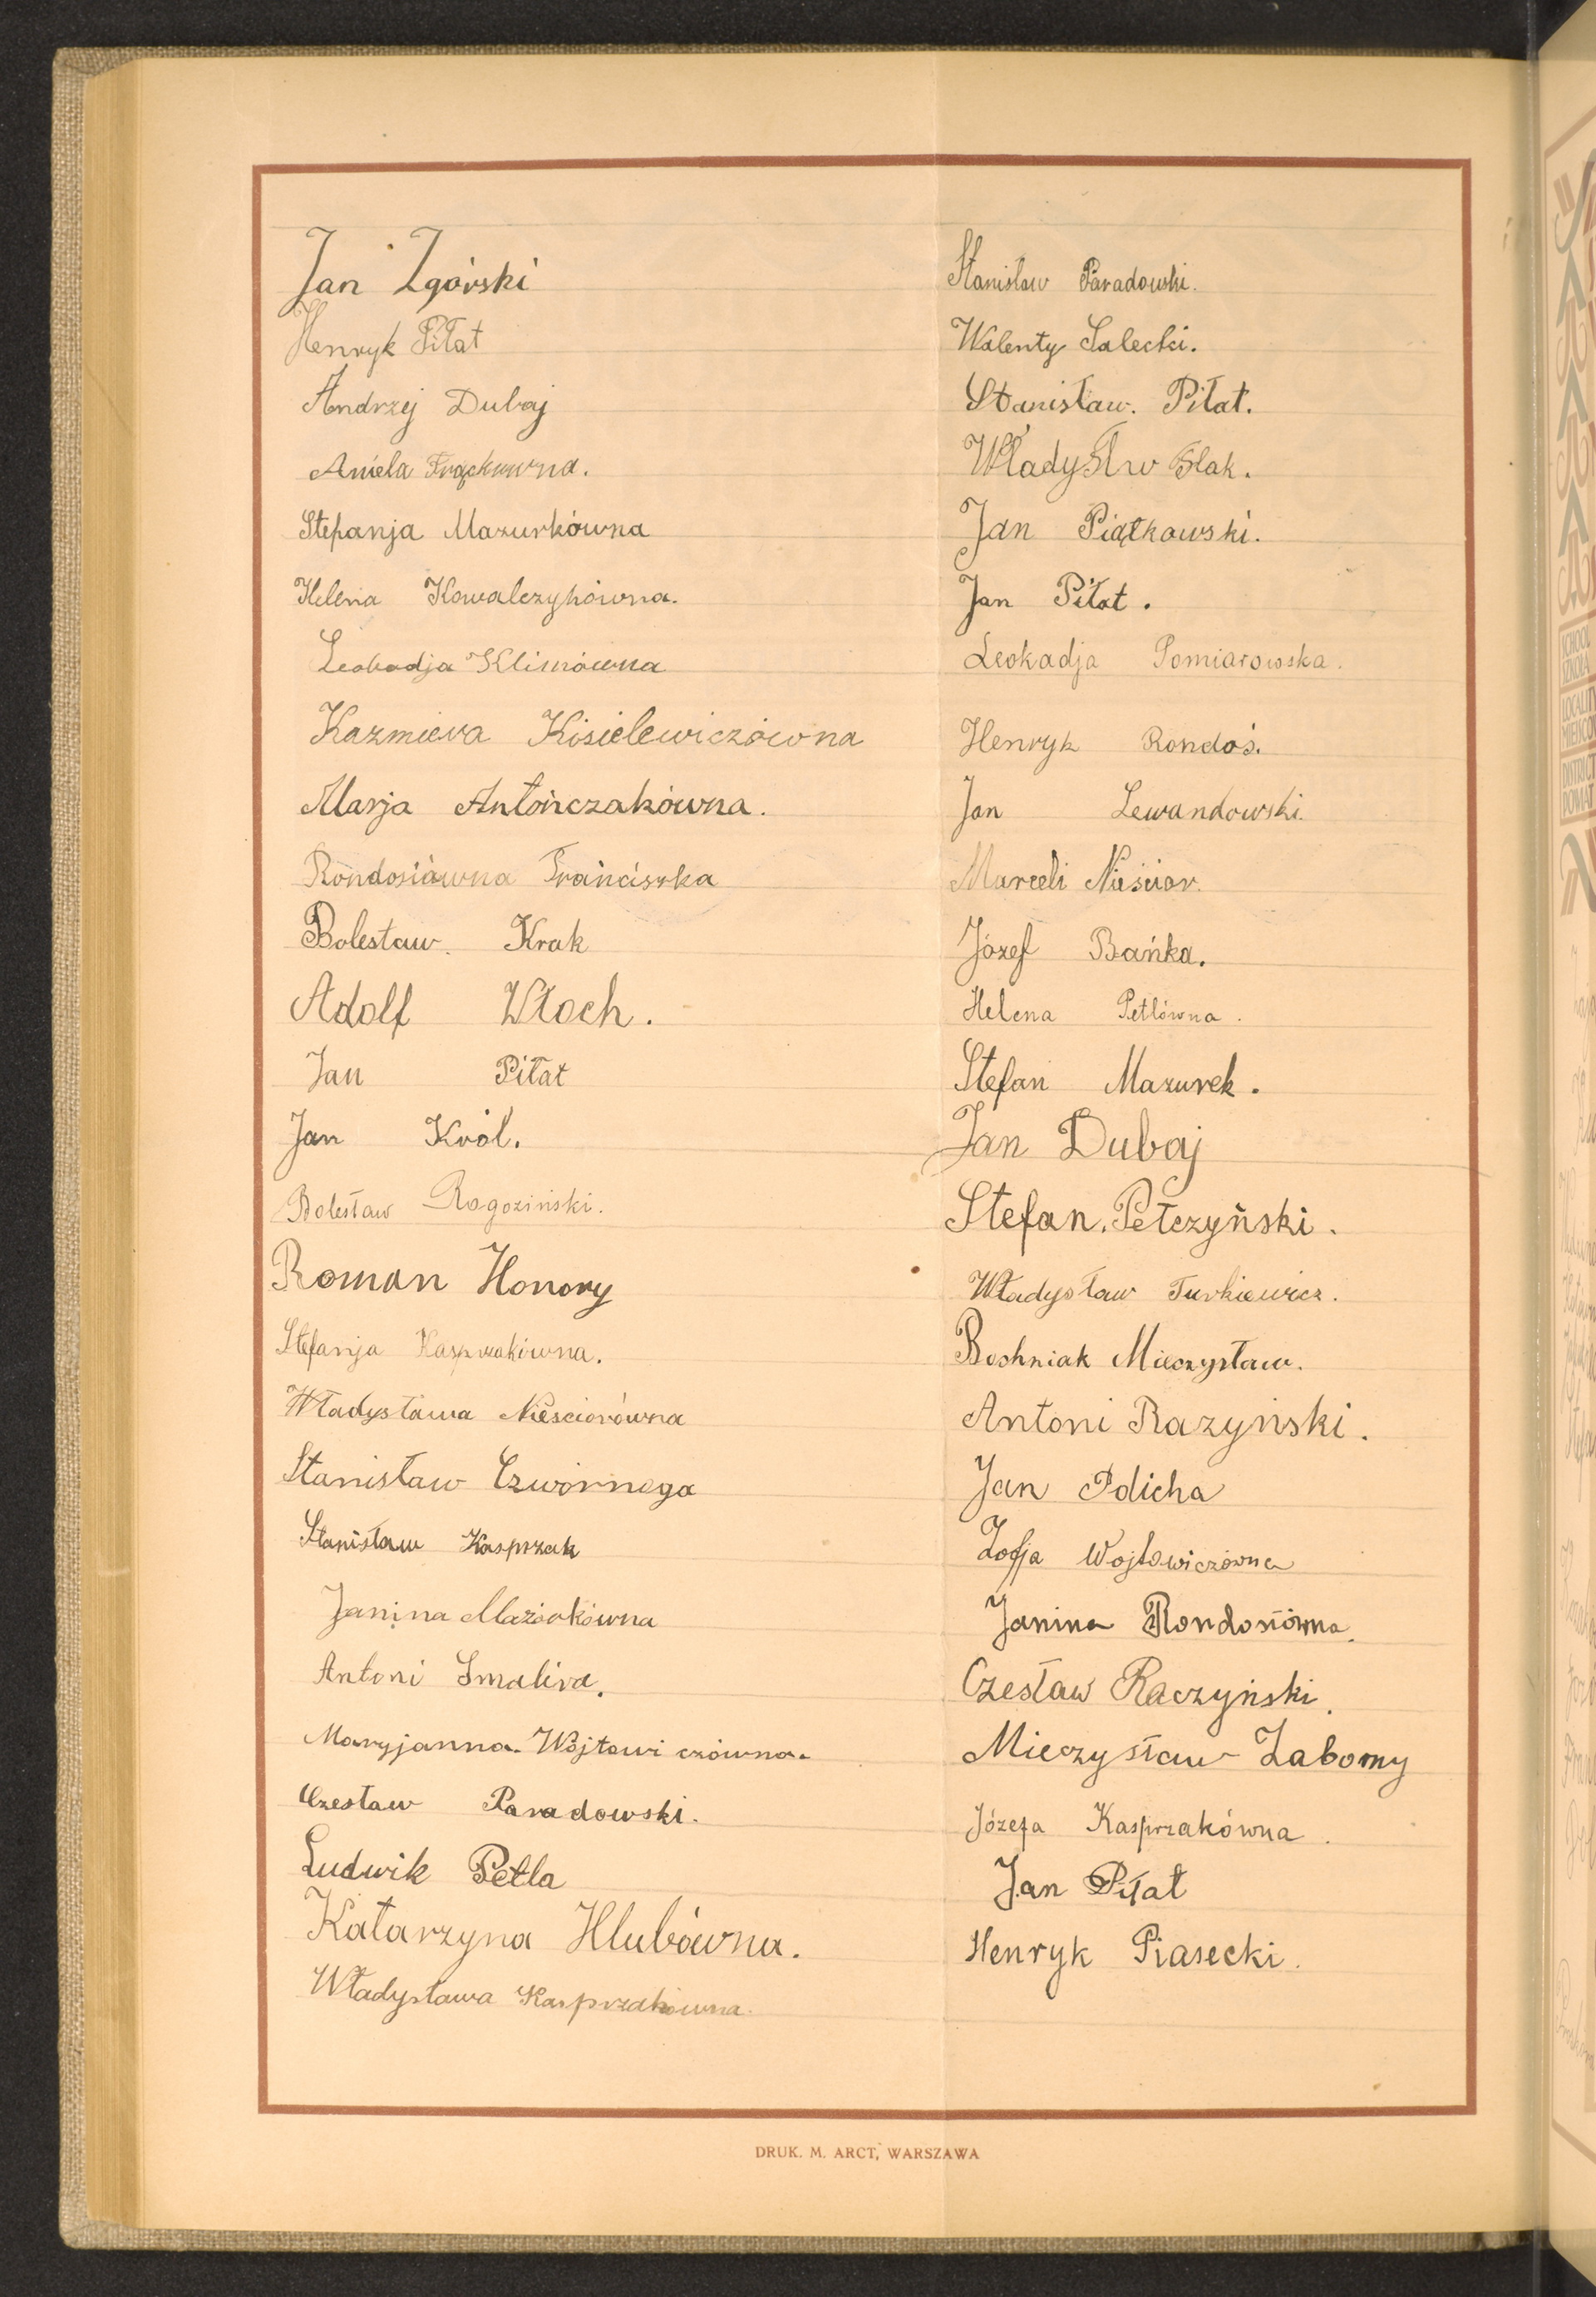 Jan Zgórski
Henryk Piłat
Andrzej Dubaj
Aniela Frąckowna.
Stefanja Mazurkówna
Helena Kowalczykówna.
Leokadja Klimówna
Kazmiera Kisielewiczówna
Marja Antończakówna.
Rondosiówna Franciszka
Bolesław Krak
Adolf Włoch.
Jan Piłat
Jan Król.
Bolesław Rogoziński.
Roman Honory
Stefanja Kasprzakówna.
Władysława Nieściorówna
Stanisław Czwórnoga
Stanisław Kasprzak
Janina Maziorkówna
Antoni Smalira.
Maryjanna Wójtowiczówna.
Czesław Paradowski.
Ludwik Petla
Katarzyna Hlubówna.
Władysława Kasprzakówna.
Stanisław Paradowski.
Walenty Salecki.
Stanisław. Piłat.
Władysłw Flak.
Jan Piątkowski.
Jan Piłat.
Leokadja Pomiarowska.
Henryk Rondoś.
Jan Lewandowski.
Marceli Nieścior.
Józef Bańka.
Helena Petlówna.
Stefan Mazurek.
Jan Dubaj
Stefan. Pełczyński.
Władysław Turkiewicz.
Bochniak Mieczysław.
Antoni Razyński.
Jan Policha
Zofja Wojtowiczówna
Janina Rondosiówna.
Czesław Raczyński.
Mieczysław Zabomy
Józefa Kasprzakówna.
Jan Piłat
Henryk Piasecki.
DRUK. M. ARCT, WARSZAWA